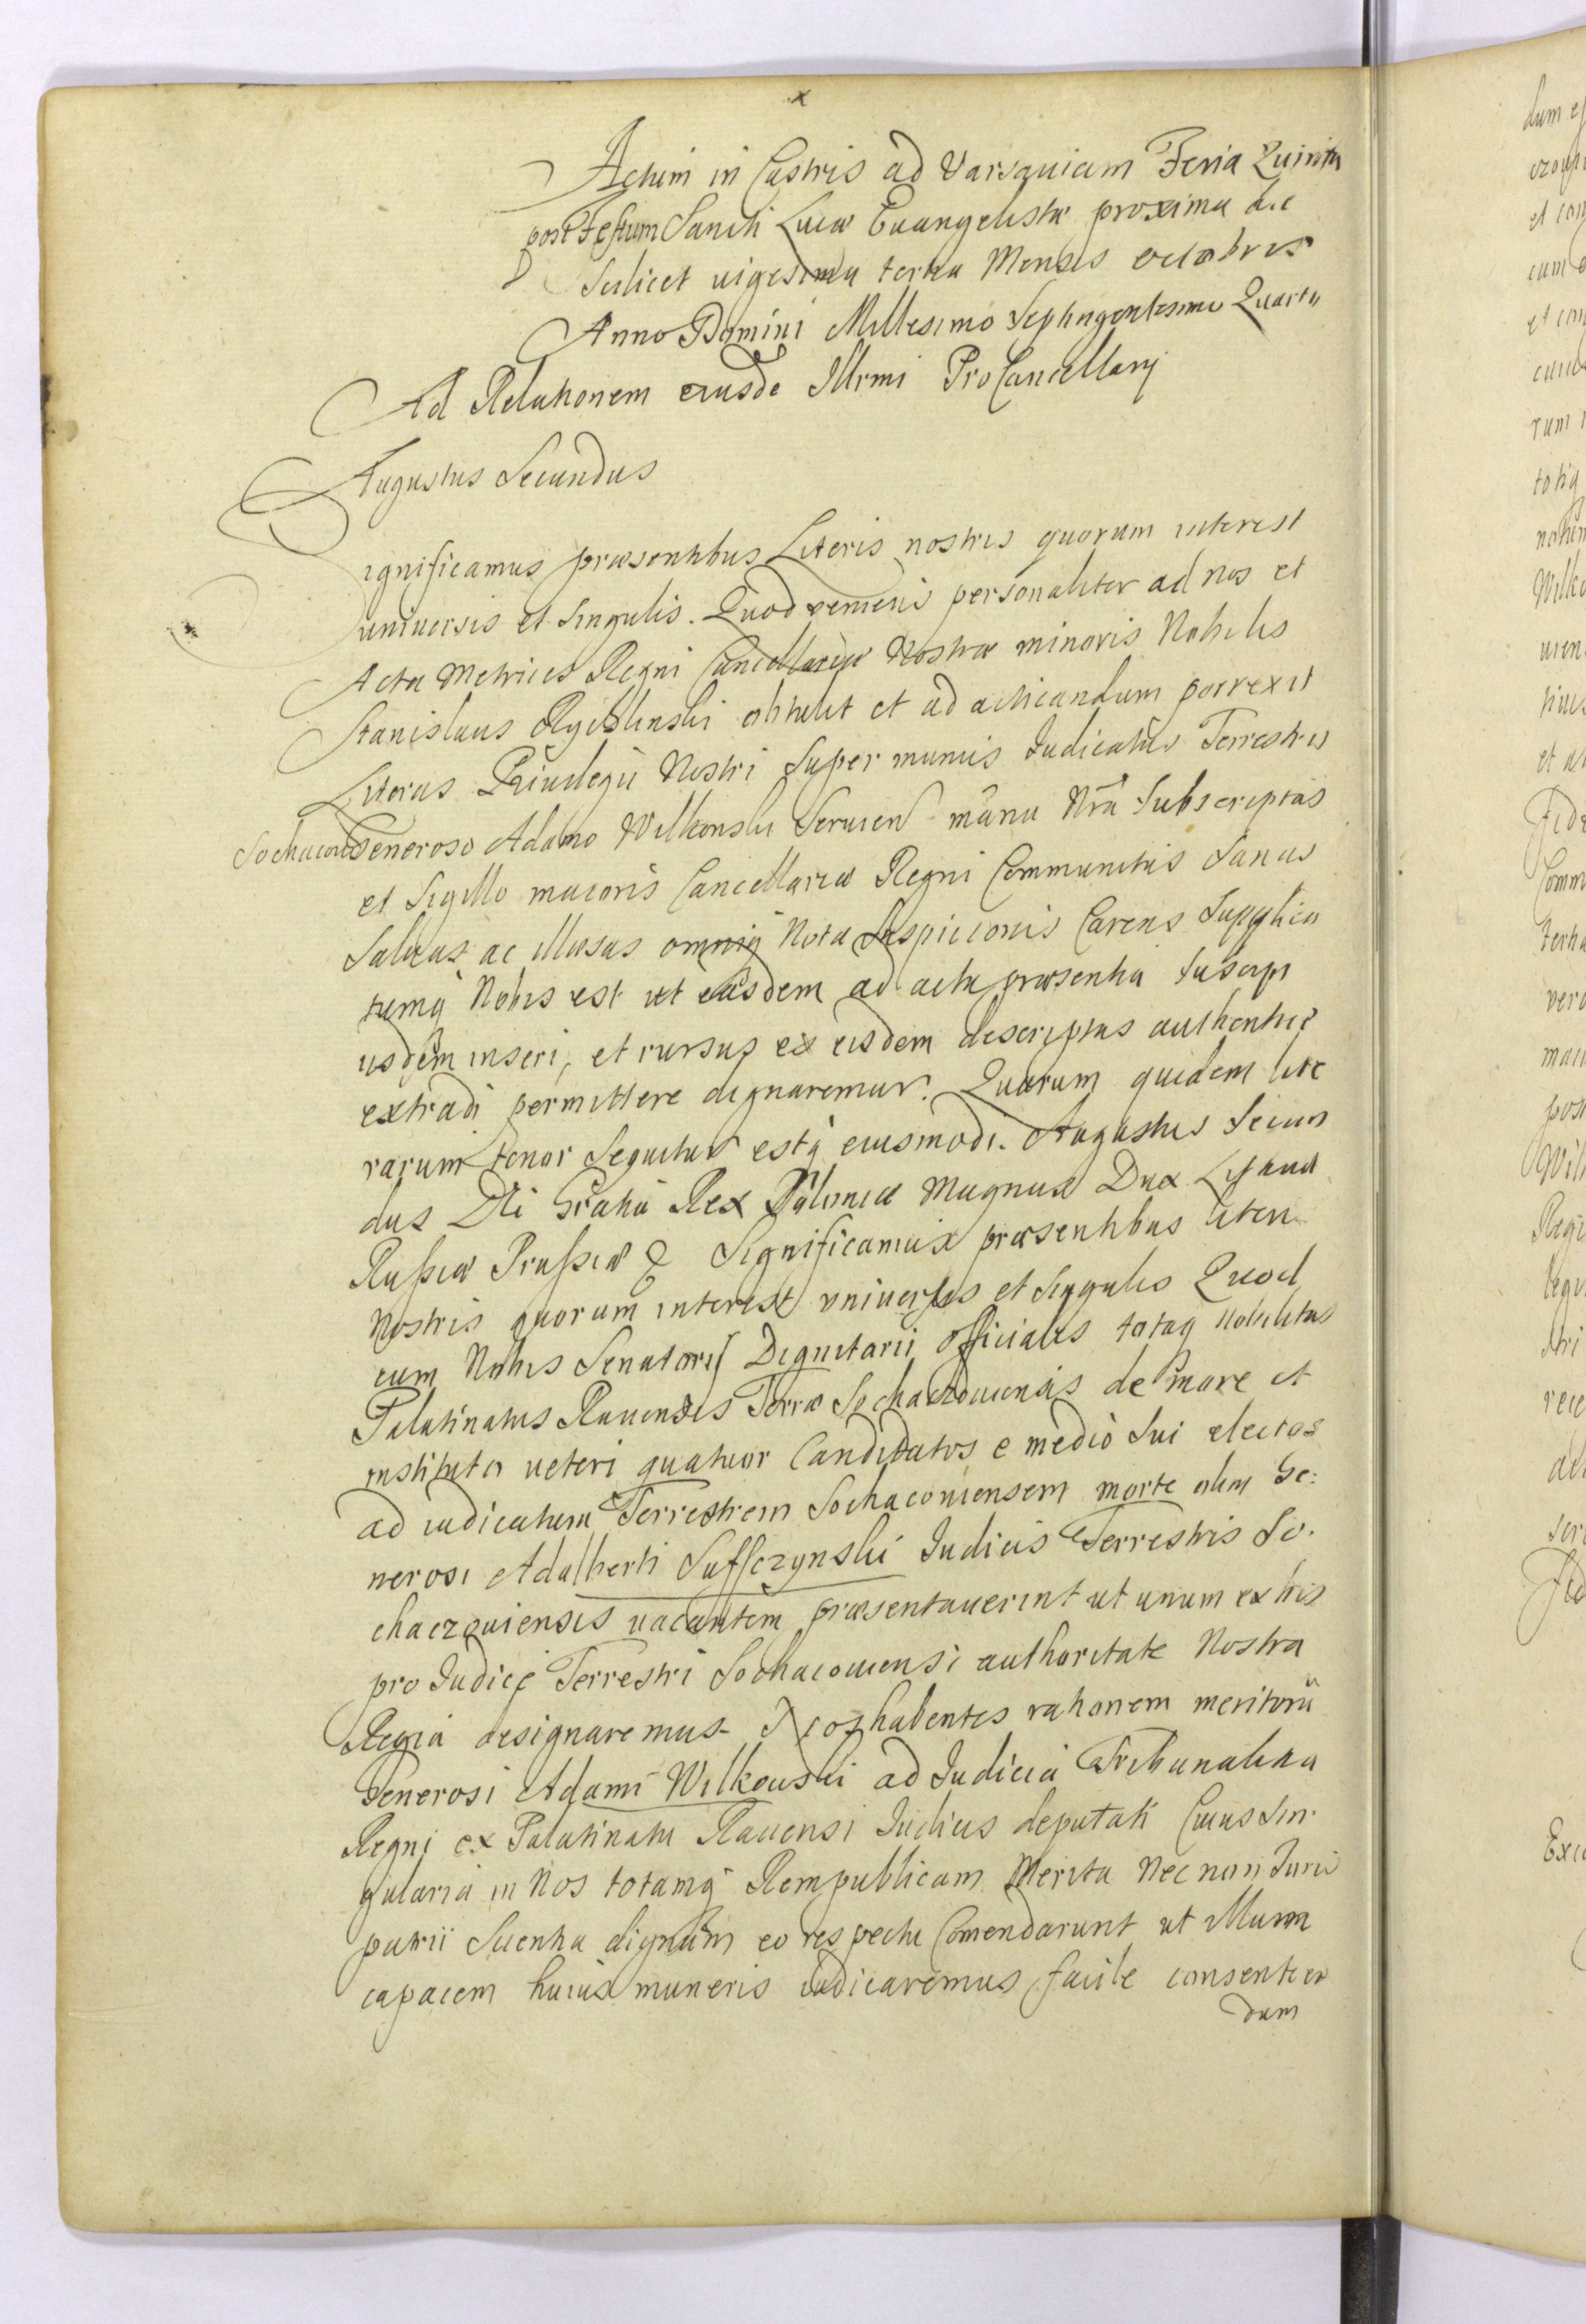 x
Actum in Castris ad Varsauiam Feria Quinta
post Festum Sancti Lucæ Euangelistæ proxima die
Scilicet uigesima tertia Mensis octobris
Anno Domini Millesimo Septingentesimo Quarto
Ad Relationem eiusde Illrmi ProCancellarij
Augustus Secundus
Significamus præsentibus Literis nostris quorum interest
uniuersis et Singulis. Quod veniens personaliter ad nos et
Acta Metrices Regni Cancellariæ Nostræ minoris Nobilis
Stanislaus obtulit et ad acticandum porrexit
Literas Priuilegii Nostri Super munus Iudicatus Terrestris
Sochacou Generoso Adamo Wilkonski Seruien manu Nrã Subscriptas
et Sigillo maioris Cancellariæ Regni Communitas Sanas
Saluas ac illæsas omniq Nota Suspicionis Carens Supplica
tumq Nobis est ut easdem ad acta præsentia Suscipi
iisdem inseri, et rursus ex iisdem descriptas authentice
extradi permittere dignaremur. Quarum quidem lite
rarum tenor Sequitur estq eiusmodi. Augustus Secun
dus Dei Gratia Rex Poloniæ Magnus Dux Lithua
Russiæ Prussiæ & Significamus præsentibus liter
Nostris quorum interest vniuersis et Singulis Quod
cum Nobis Senatores Dignitarii officiales totaq Nobilitas
Palatinatus Rauensis Terræ Sochaczouiensis de more et
instituto ueteri quatuor Candidatos e medio Sui electos
ad iudicatum Terrestrem Sochacouiensem morte olim Ge:
nerosi Adalberti Suffczynski Iudicis Terrestris So.
chaczouiensis uacantem præsentauerint ut unum ex his
pro Iudice Terrestri Sochacouiensi authoritate Nostra
Regia designaremus habentes rationem meritorũ
Generosi Adami Wilkouski ad Iudicia Tribunalitia
Regni ex Palatinatu Rauensi Iudicis deputati Cuius Sin.
gularia in Nos totamq Rempublicam Merita Nec non Iuris
patrii Scientia dignum eo respectu Comendarunt ut illum
capacem huius muneris iudicaremus facile consentien
dum